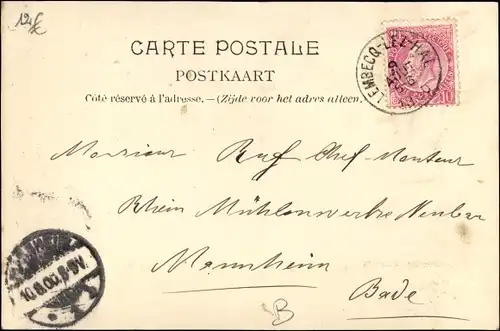 12 fc
CARTE POSTALE
POSTKAART
Côté réservé à l'adresse. — (Zijde voor het adres alleen.)
LEMBECQ-LEZ-HAL
10
Monsieur Ruf Chef-Monteur
Rhein Mühlenwerke Neubau
Mannheim
Bade
10.8.05. 8-9V.
B